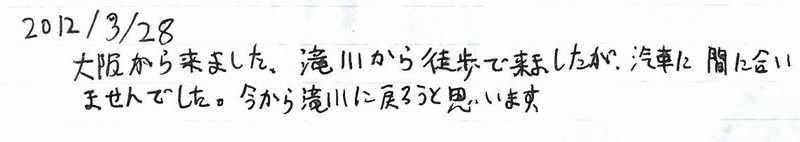 2012/3/28
大阪から来ました。滝川から徒歩で来ましたが、汽車に間に合い
ませんでした。今から滝川に戻ろうと思います